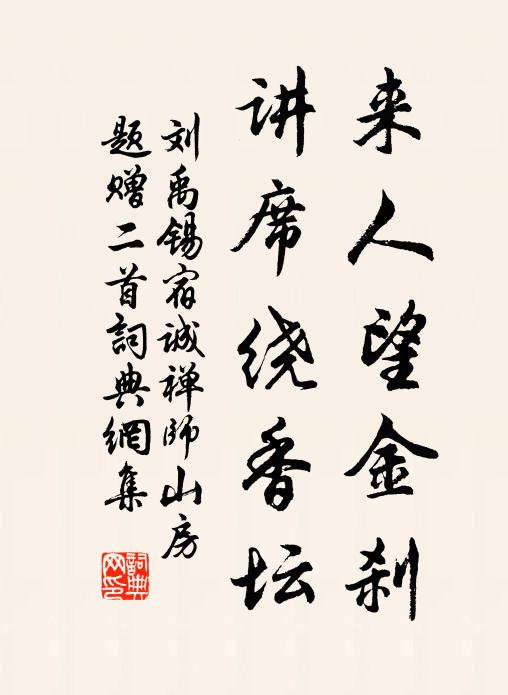 来人望金刹
讲席绕香坛
刘禹锡宿诚禅师山房
题赠二首詞典網集
詞典
网印